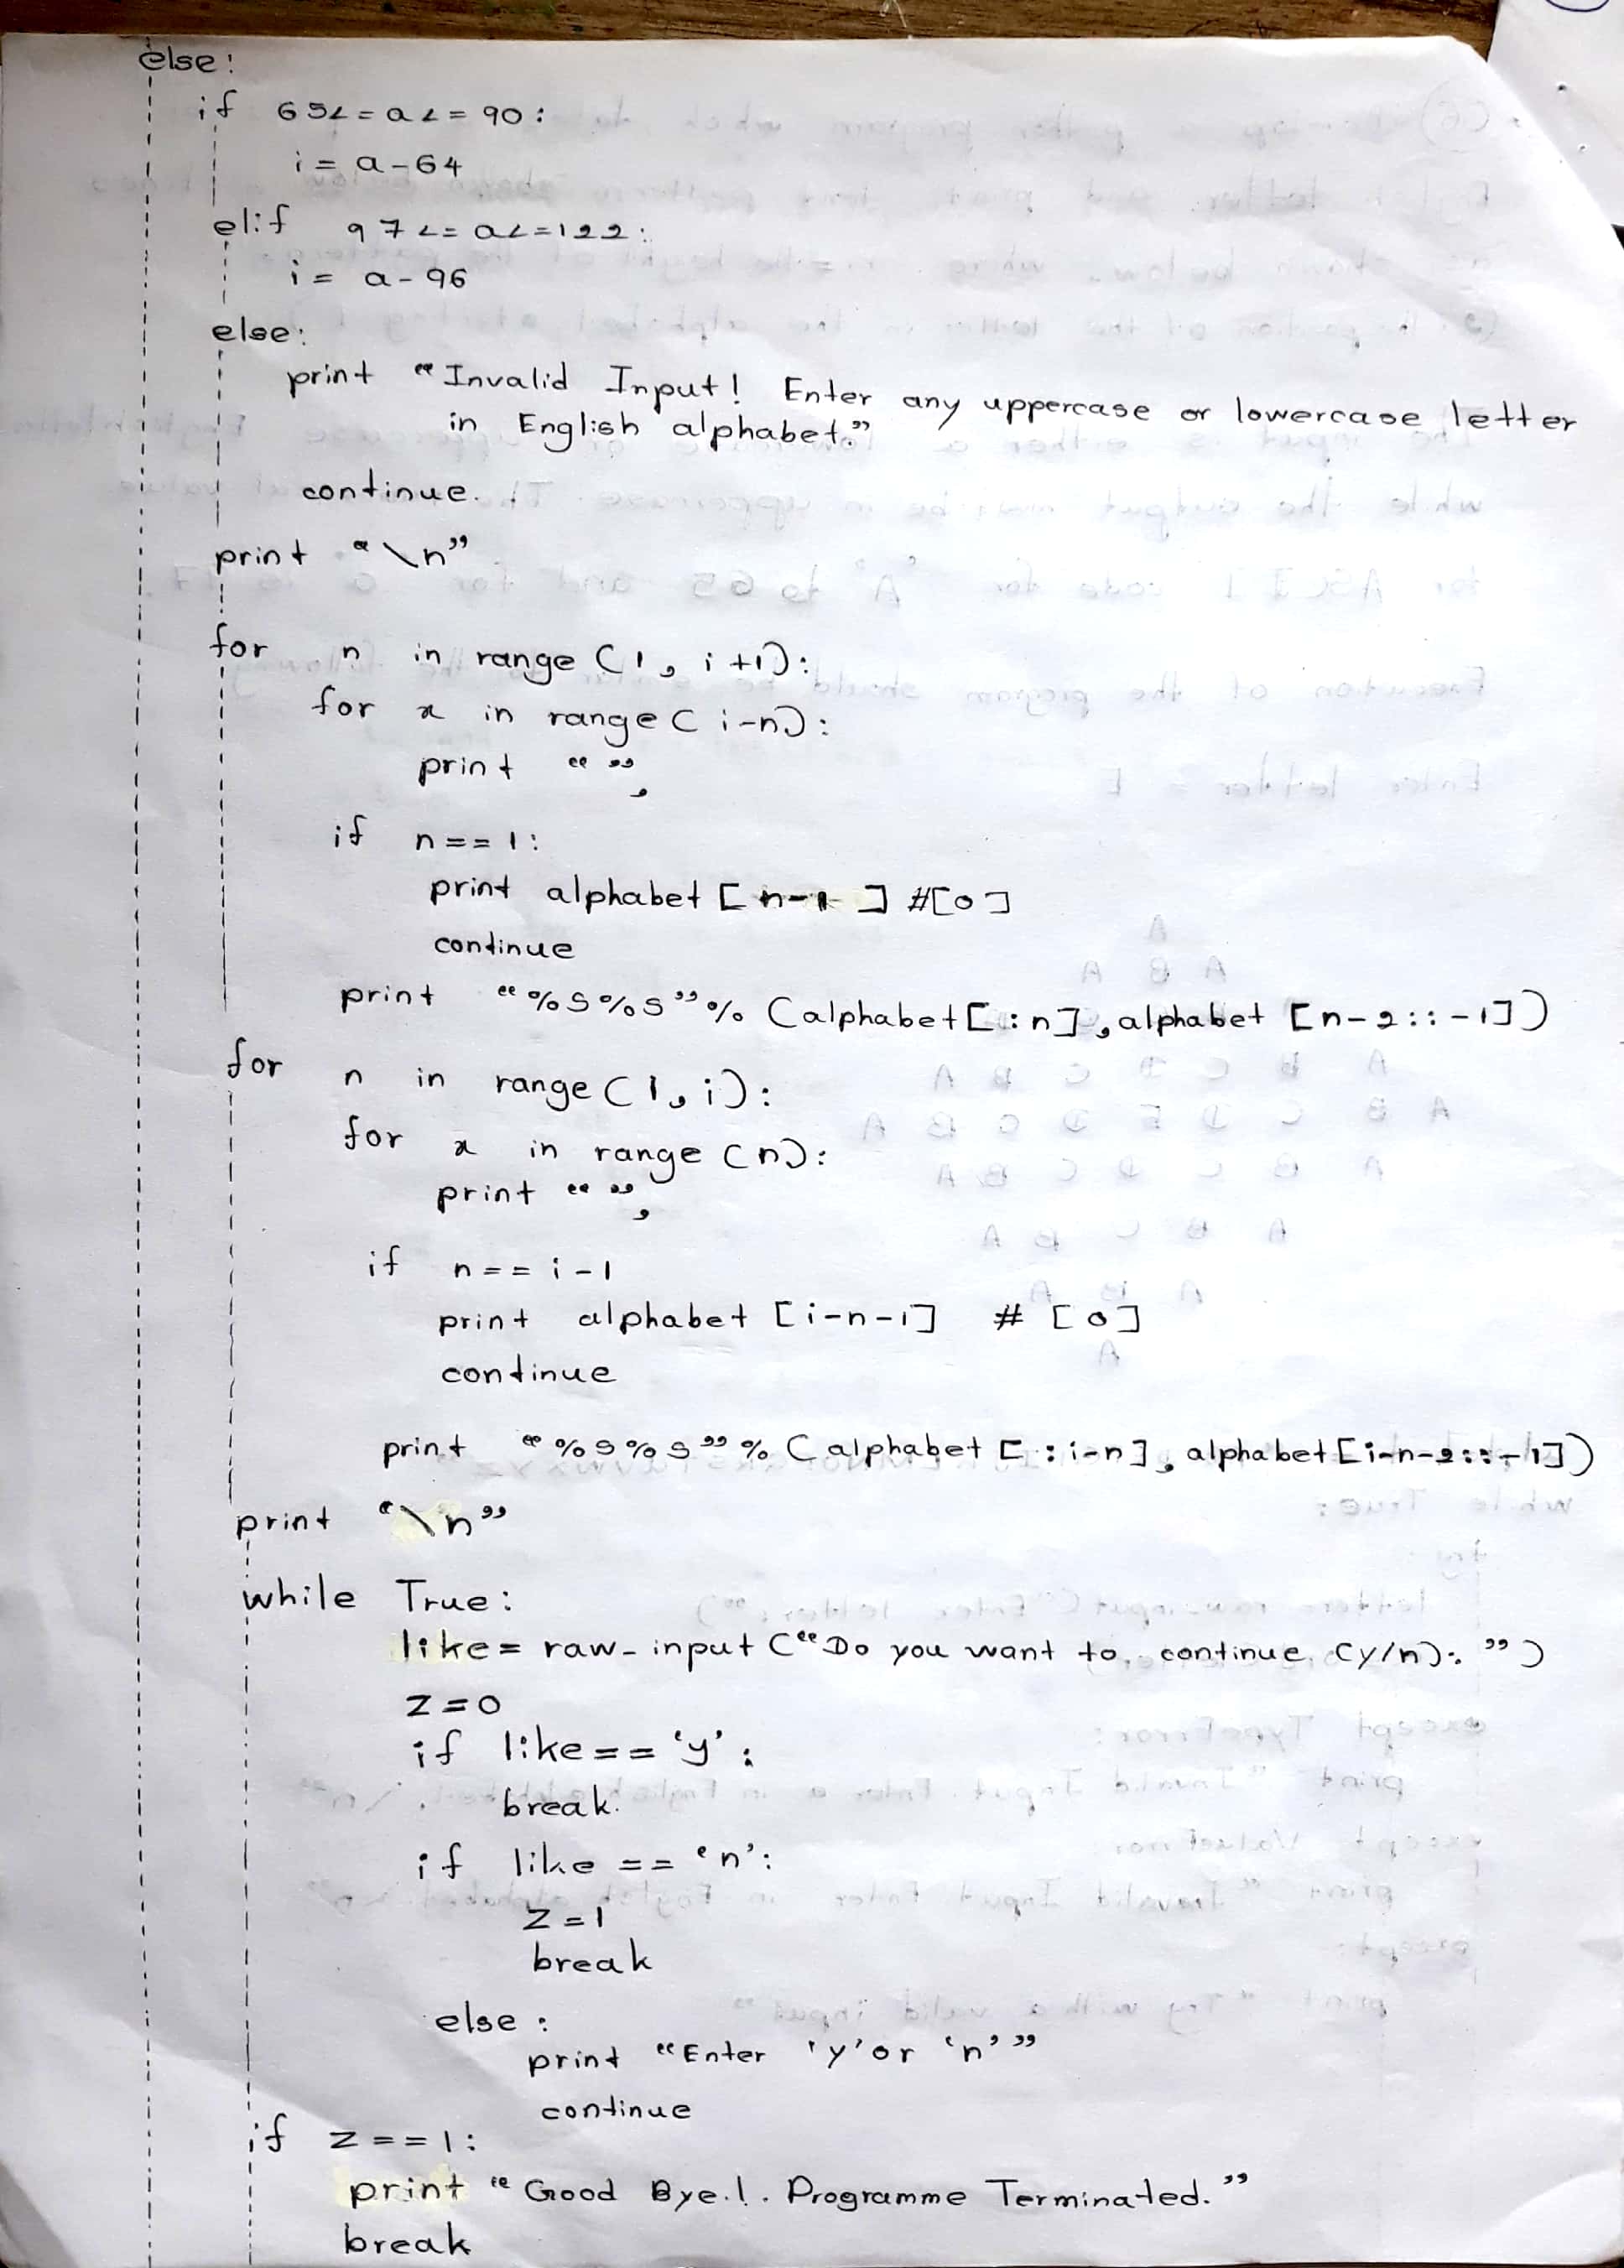 else:
if 65<=a<=90:
i = a-64
elif 97<=a<=122:
i = a-96
else:
print "Invalid Input! Enter any uppercase or lowercase letter
in English alphabet."
continue.
print "\n"
for n in range (1, i+1):
for x in range (i-n):
print " ",
if n==1:
print alphabet [n-1] #[0]
continue
print "%s%s"% (alphabet[:n], alphabet [n-2::-1])
for n in range (1, i):
for x in range (n):
print " ",
if n==i-1
print alphabet [i-n-1] # [0]
continue
print "%s%s"% (alphabet [:i-n], alphabet[i-n-2::-1])
print "\n"
while True:
like= raw_input ("Do you want to continue (y/n): ")
z=0
if like=='y':
break.
if like == 'n':
z=1
break
else:
print "Enter 'y' or 'n'"
continue
if z==1:
print "Good Bye.!. Programme Terminated."
break